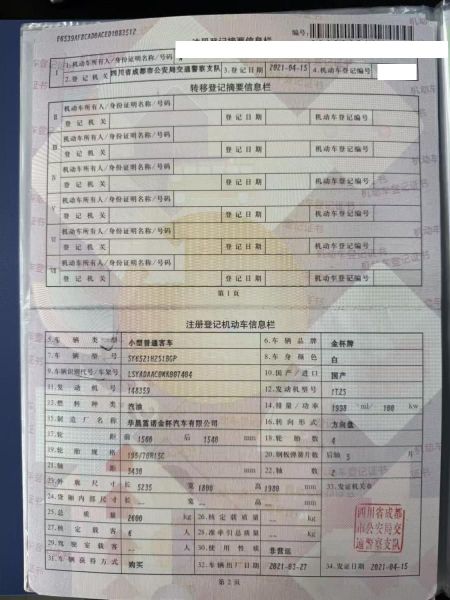 注册登记摘要信息栏
编号:
I
1.机动车所有人/身份证明名称/号码
2.登记机关 四川省成都市公安局交通警察支队 3.登记日期 2021-04-15 4.机动车登记编号
转移登记摘要信息栏
II 机动车所有人/身份证明名称/号码
登记机关 登记日期 机动车登记编号
III 机动车所有人/身份证明名称/号码
登记机关 登记日期 机动车登记编号
IV 机动车所有人/身份证明名称/号码
登记机关 登记日期 机动车登记编号
V 机动车所有人/身份证明名称/号码
登记机关 登记日期 机动车登记编号
VI 机动车所有人/身份证明名称/号码
登记机关 登记日期 机动车登记编号
VII 机动车所有人/身份证明名称/号码
登记机关 登记日期 机动车登记编号
第1页
注册登记机动车信息栏
5.车辆类型 小型普通客车 6.车辆品牌 金杯牌
7.车辆型号 SY6521H2S1BGP 8.车身颜色 白
9.车辆识别代号/车架号 LSYADAAC0MK007404 10.国产/进口 国产
11.发动机号 148359 12.发动机型号 1TZS
13.燃料种类 汽油 14.排量/功率 1998 ml/ 100 kw
15.制造厂名称 华晨雷诺金杯汽车有限公司 16.转向形式 方向盘
17.轮距 前 1500 后 1540 mm 18.轮胎数 4
19.轮胎规格 195/70R15C 20.钢板弹簧片数 后轴 5 片
21.轴距 3430 mm 22.轴数 2
23.外廓尺寸 长 5235 宽 1800 高 1980 mm 33.发证机关章
24.货厢内部尺寸 长 -- 宽 -- 高 -- mm
25.总质量 2600 kg 26.核定载质量 -- kg
27.核定载客 6 人 28.准牵引总质量 -- kg
29.驾驶室载客 -- 人 30.使用性质 非营运
31.车辆获得方式 购买 32.车辆出厂日期 2021-03-27 34.发证日期 2021-04-15
四川省成都
市公安局交
通警察支队
第2页